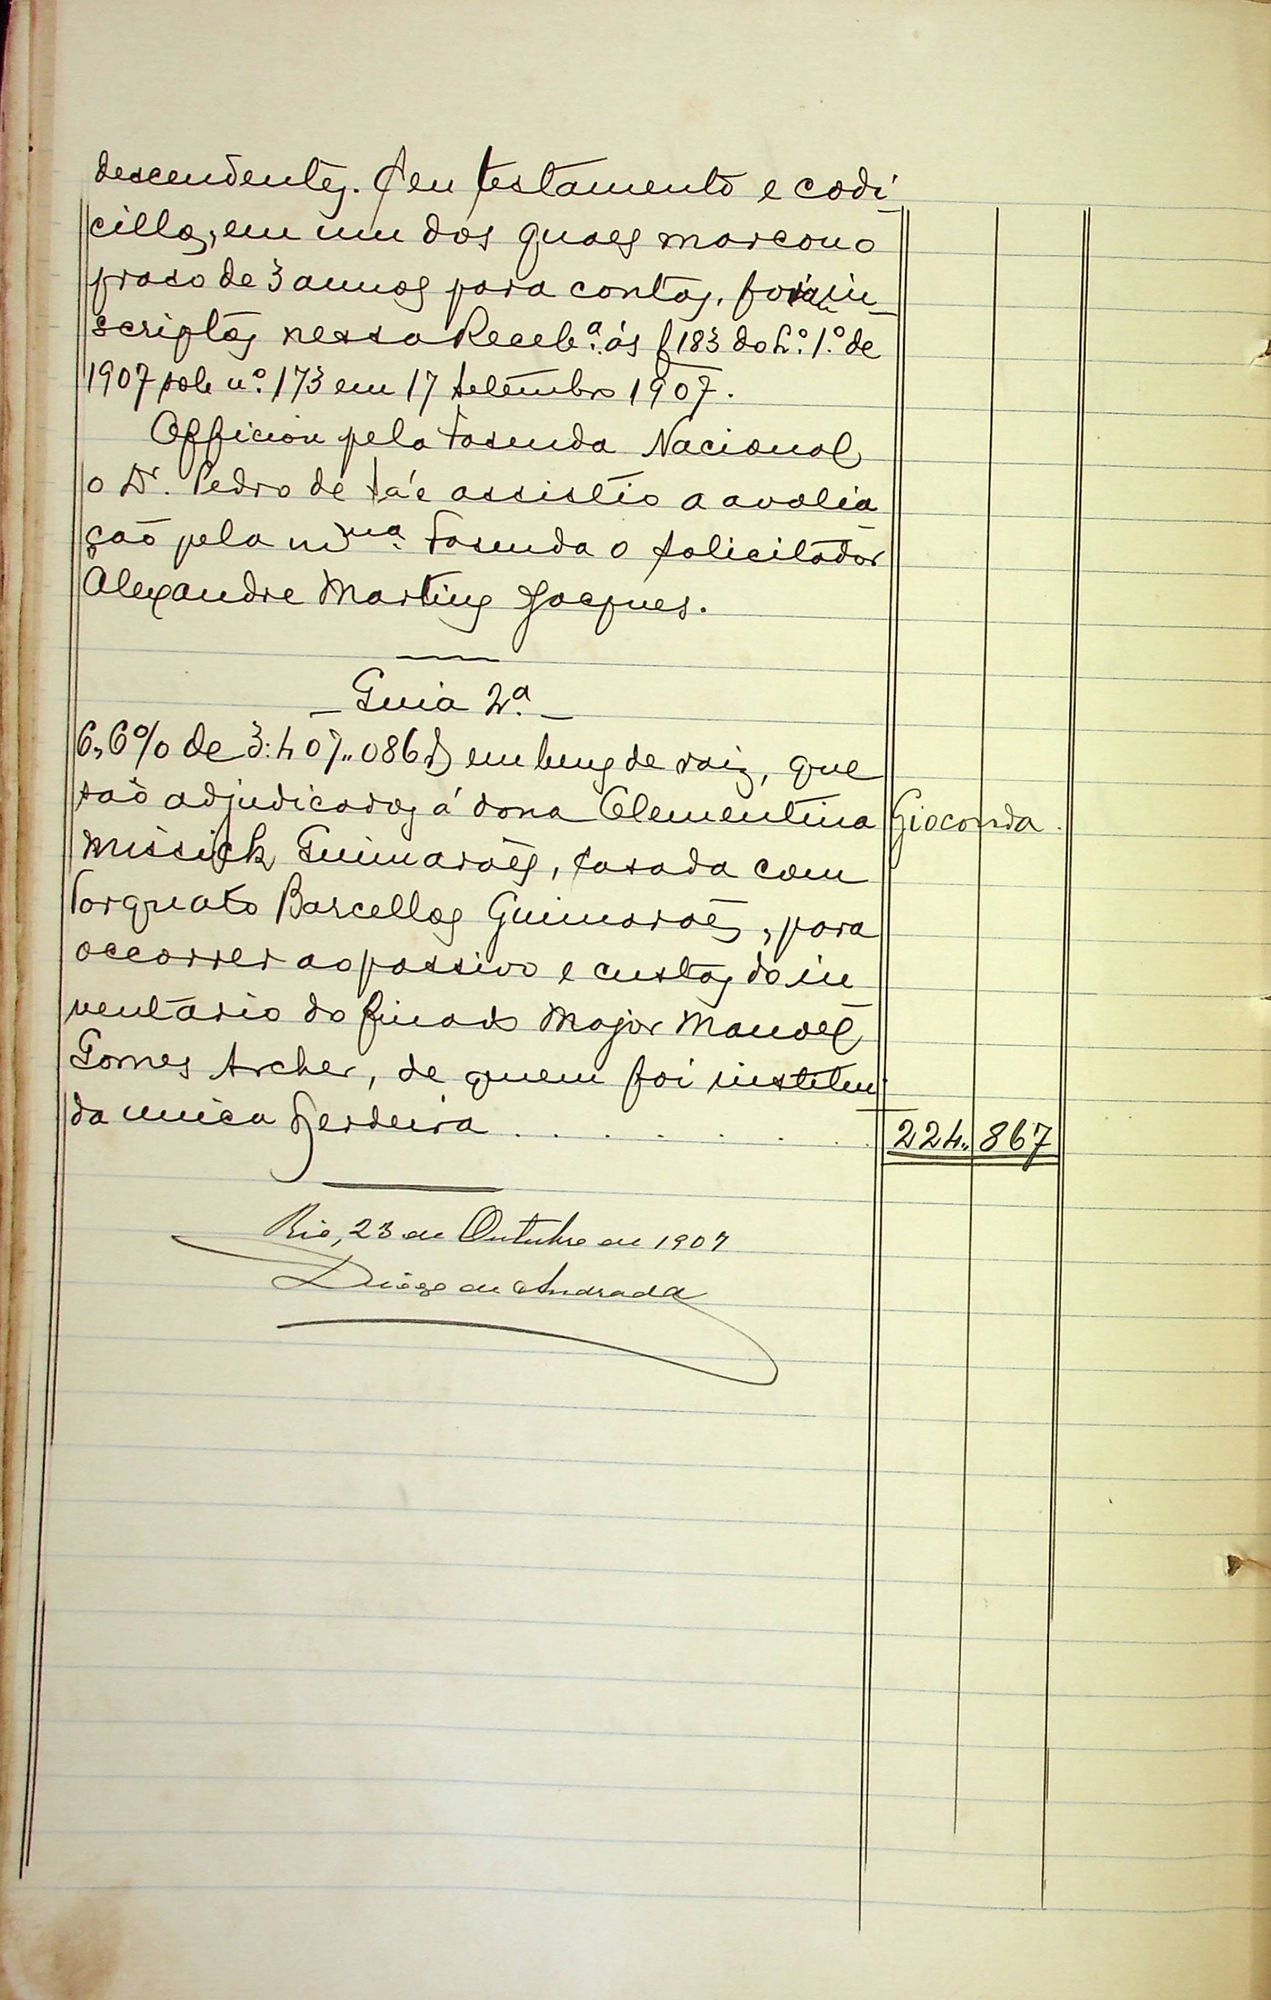 descendentes. Seu testamento e codi-
cillos, em um dos quaes marcou o
praso de 3 annos para contas, foram in-
scriptos nessa Receb.ª ás f 183 do L.º 1.º de
1907 sob n.º 173 em 17 Setembro 1907.
Officiou pela Fasenda Nacional
o Dr. Pedro de Sá e assistio a avalia
ção pela m.ma Fasenda o Solicitador
Alexandre Martins Jacques.
Guia 2.ª
6,6% de 3:407..086$ em bens de raiz, que
são adjudicados á dona Clementina Gioconda
Missick Guimarães, casada com
Torquato Barcellos Guimarães, para
occorrer ao passivo e custas do in
ventario do finado Major Manoel
Gomes Archer, de quem foi institui
da unica herdeira . . . . . . . 224.. 867
Rio, 23 de Outubro de 1907
Diogo de Andrada